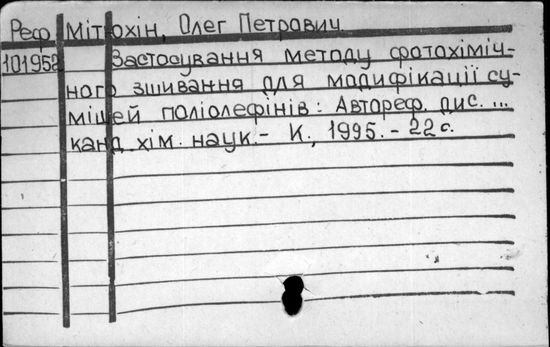 Реф Мітюхін, Олег Петрович
101952 Застосування методу фотохіміч-
ного зшивання для модифікації су-
мішей поліолефінів: Автореф. дис. ...
канд. хім. наук.- К., 1995.- 22 с.